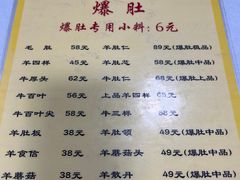 爆肚
爆肚专用小料:6元
毛肚 58元 羊肚仁 89元(爆肚极品)
羊四样 45元 羊肚芯 58元(爆肚中品)
牛厚头 62元 牛肚仁 68元(爆肚上品)
牛百叶 56元 上品羊四样 68元
牛百叶尖 58元 牛三样 58元(爆肚中品)
羊肚板 38元 羊肚领 49元(爆肚中品)
羊食信 38元 羊蘑菇 49元(爆肚中品)
羊蘑菇头 38元 羊散丹 49元(爆肚中品)